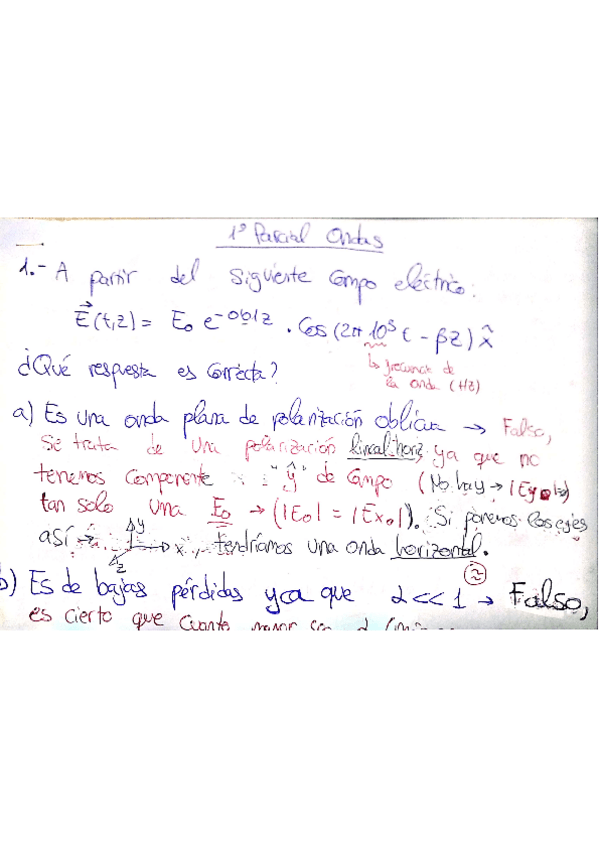 1º Parcial Ondas
1.- A partir del siguiente campo eléctrico:
E⃗(t,z) = E₀ e^-0'01z · Cos(2π 10⁵ t - βz) x̂
¿Qué respuesta es correcta?
↳ frecuencia de
la onda (Hz)
a) Es una onda plana de polarización oblicua → Falso,
se trata de una polarización lineal horiz, ya que no
tenemos componente "ŷ" de campo (No hay → |Ey
tan solo una E₀ → (|E₀| = |Ex₀|). Si ponemos los ejes
así → y x z, tendríamos una onda horizontal.
b) Es de bajas pérdidas ya que α << 1 → Falso,
es cierto que cuanto menor sea α